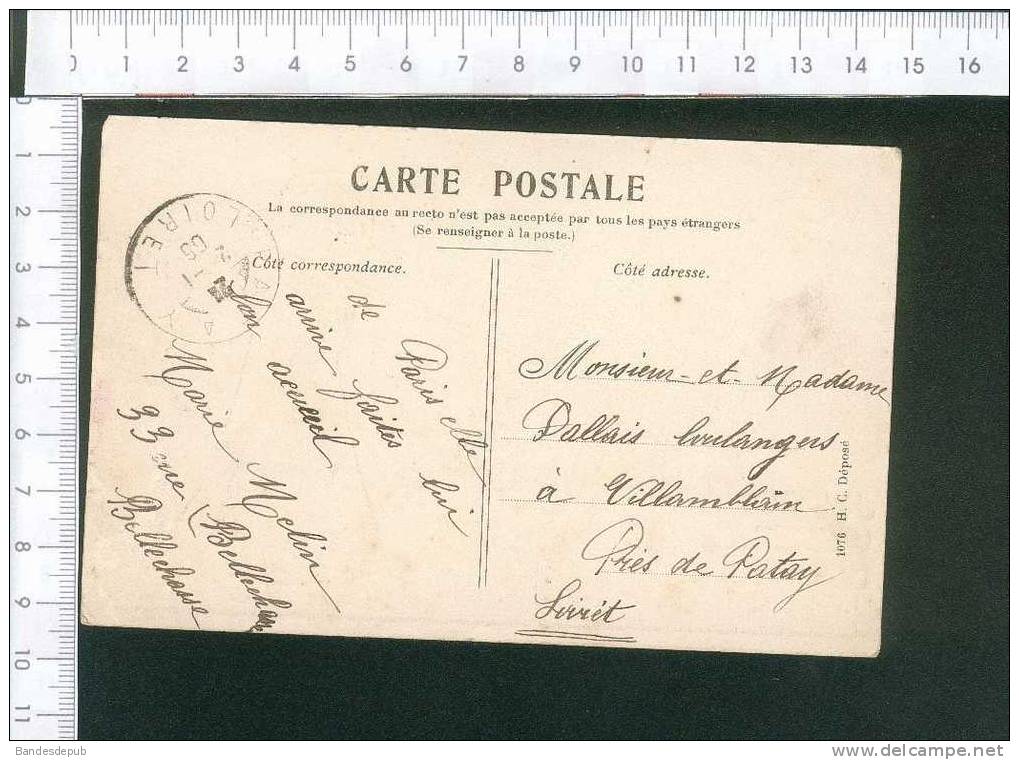 0 1 2 3 4 5 6 7 8 9 10 11 12 13 14 15 16
0
1
2
3
4
5
6
7
8
9
10
11
CARTE POSTALE
La correspondance au recto n'est pas acceptée par tous les pays étrangers
(Se renseigner à la poste.)
Côté correspondance.
Côté adresse.
PATAY
LOIRET
de Paris elle lui
arrive faites
bon acceuil
Marie Melin
33 rue Bellechasse
Bellechasse
Monsieur et Madame
Pallais boulangers
à Villamblain
Près de Patay
Loirét
1076 H. C. Déposé
Bandesdepub
www.delcampe.net